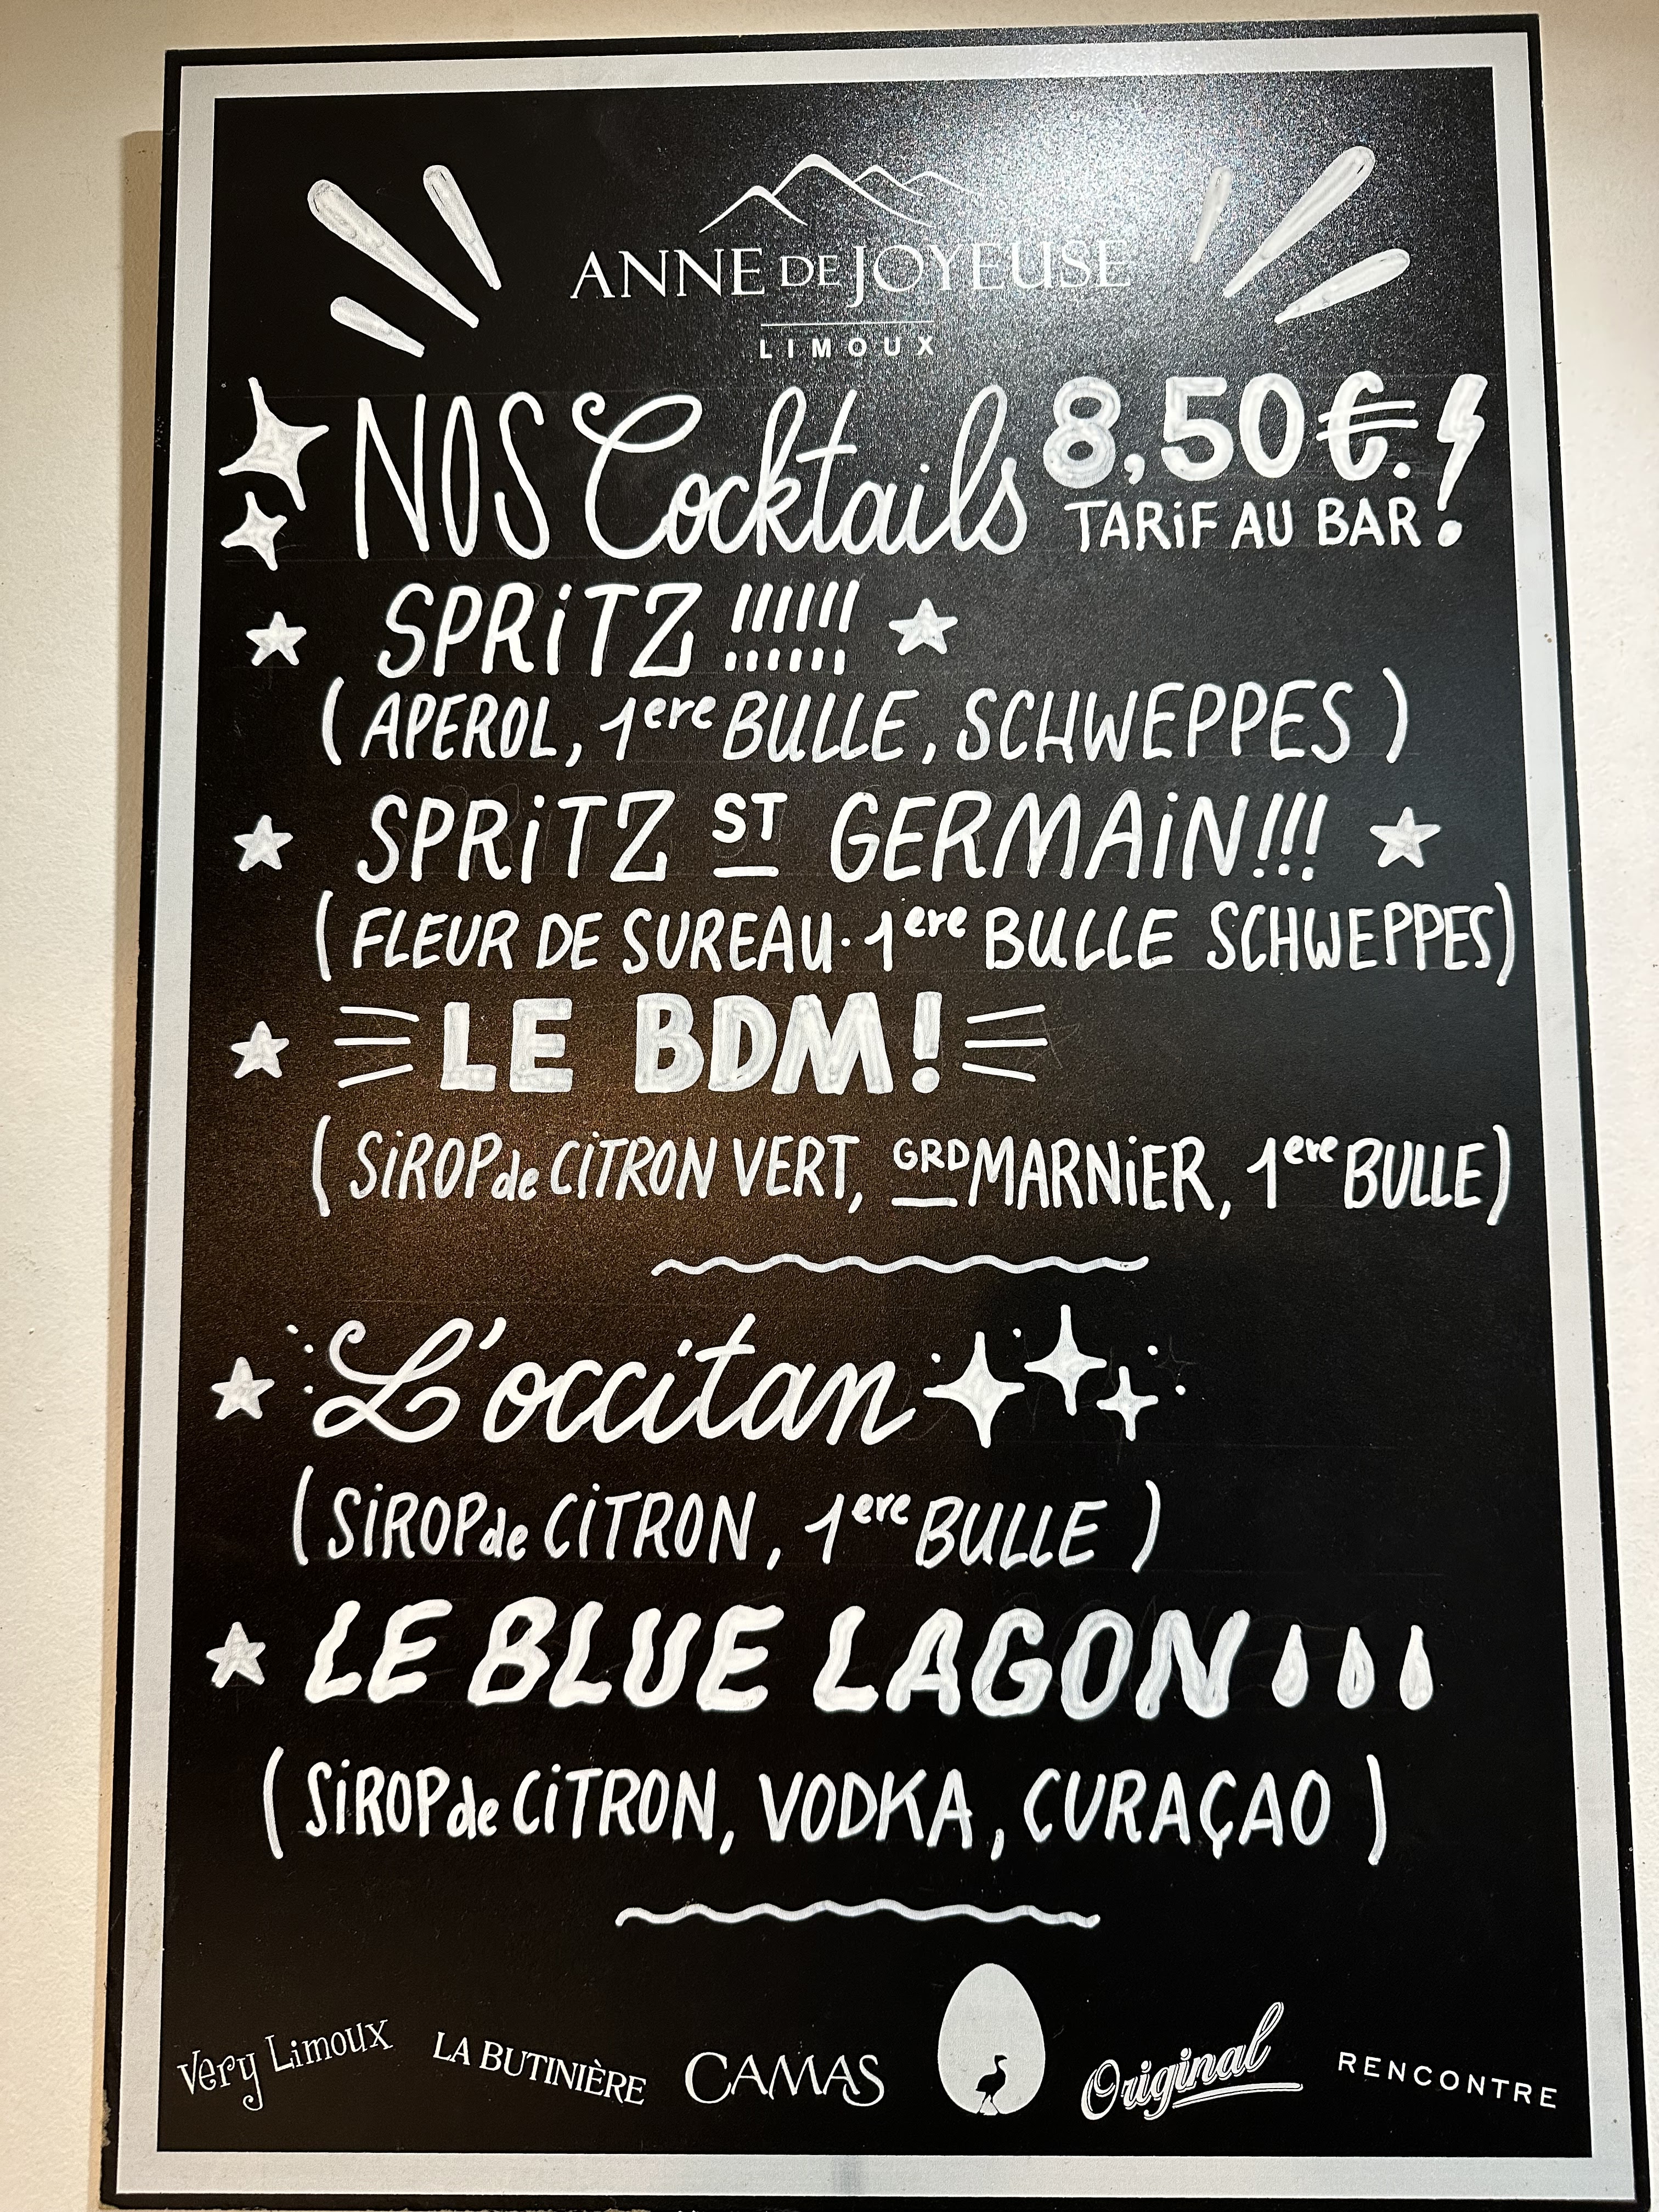 ANNE DE JOYEUSE
LIMOUX
NOS Cocktails 8,50€.!
TARiF AU BAR
SPRiTZ !!!!!!
( APEROL, 1ere BULLE, SCHWEPPES )
SPRiTZ ST GERMAiN!!!
( FLEUR DE SUREAU · 1ere BULLE SCHWEPPES)
LE BDM!
( SiROP de CiTRON VERT, GRD MARNiER, 1ere BULLE)
L'occitan
( SiROP de CiTRON, 1ere BULLE )
LE BLUE LAGON
( SiROP de CiTRON, VODKA, CURAÇAO )
Very Limoux LA BUTINIÈRE CAMAS Original RENCONTRE